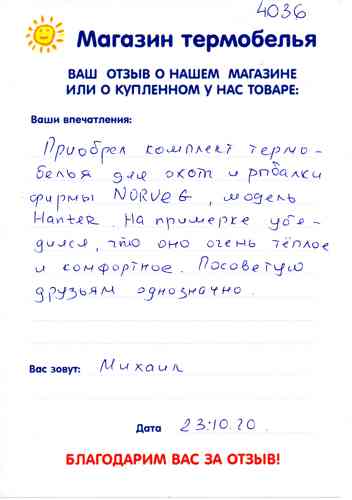 4036
Магазин термобелья
ВАШ ОТЗЫВ О НАШЕМ МАГАЗИНЕ
ИЛИ О КУПЛЕННОМ У НАС ТОВАРЕ:
Ваши впечатления:
Приобрел комплект термо-
белья для охот и рыбалки
фирмы NORVEG, модель
Hanter. На примерке убе-
дился, что оно очень тёплое
и комфортное. Посоветую
друзьям однозначно.
Вас зовут: Михаил
Дата 23.10.20.
БЛАГОДАРИМ ВАС ЗА ОТЗЫВ!